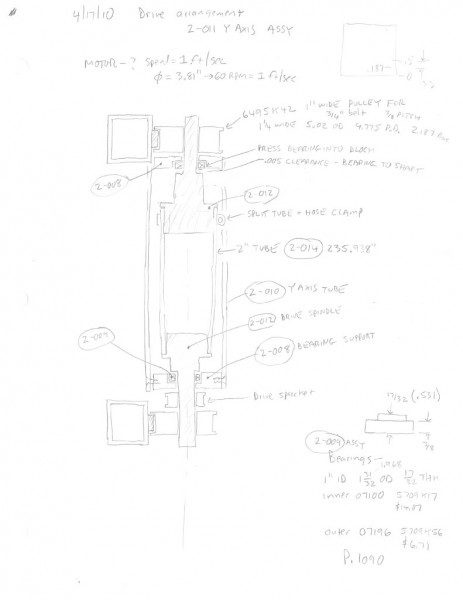 4/17/10 Drive arrangement
2-011 Y AXIS ASSY
MOTOR-? Speed = 1 ft/sec
Φ = 3.81" → 60 RPM = 1 ft/sec
.187
.5
0
6495K42 1" WIDE PULLEY FOR
3/4" bolt 3/8 PITCH
1 1/4 WIDE 5.02 OD 4.775 P.D. 2.187
PRESS BEARING INTO BLOCK
.005 CLEARANCE - BEARING TO SHAFT
2-008
2-012
SPLIT TUBE + HOSE CLAMP
2" TUBE 2-014 235.938"
2-010 Y AXIS TUBE
2-012 DRIVE SPINDLE
2-009
2-008 BEARING SUPPORT
Drive sprocket
17/32 (.531)
7/8
2-009 ASSY
Bearings -
1.968
1" ID 1 31/32 OD 17/32 THK
inner 07100 5709K17
outer 07196 5709K56
$6.71
P. 1090